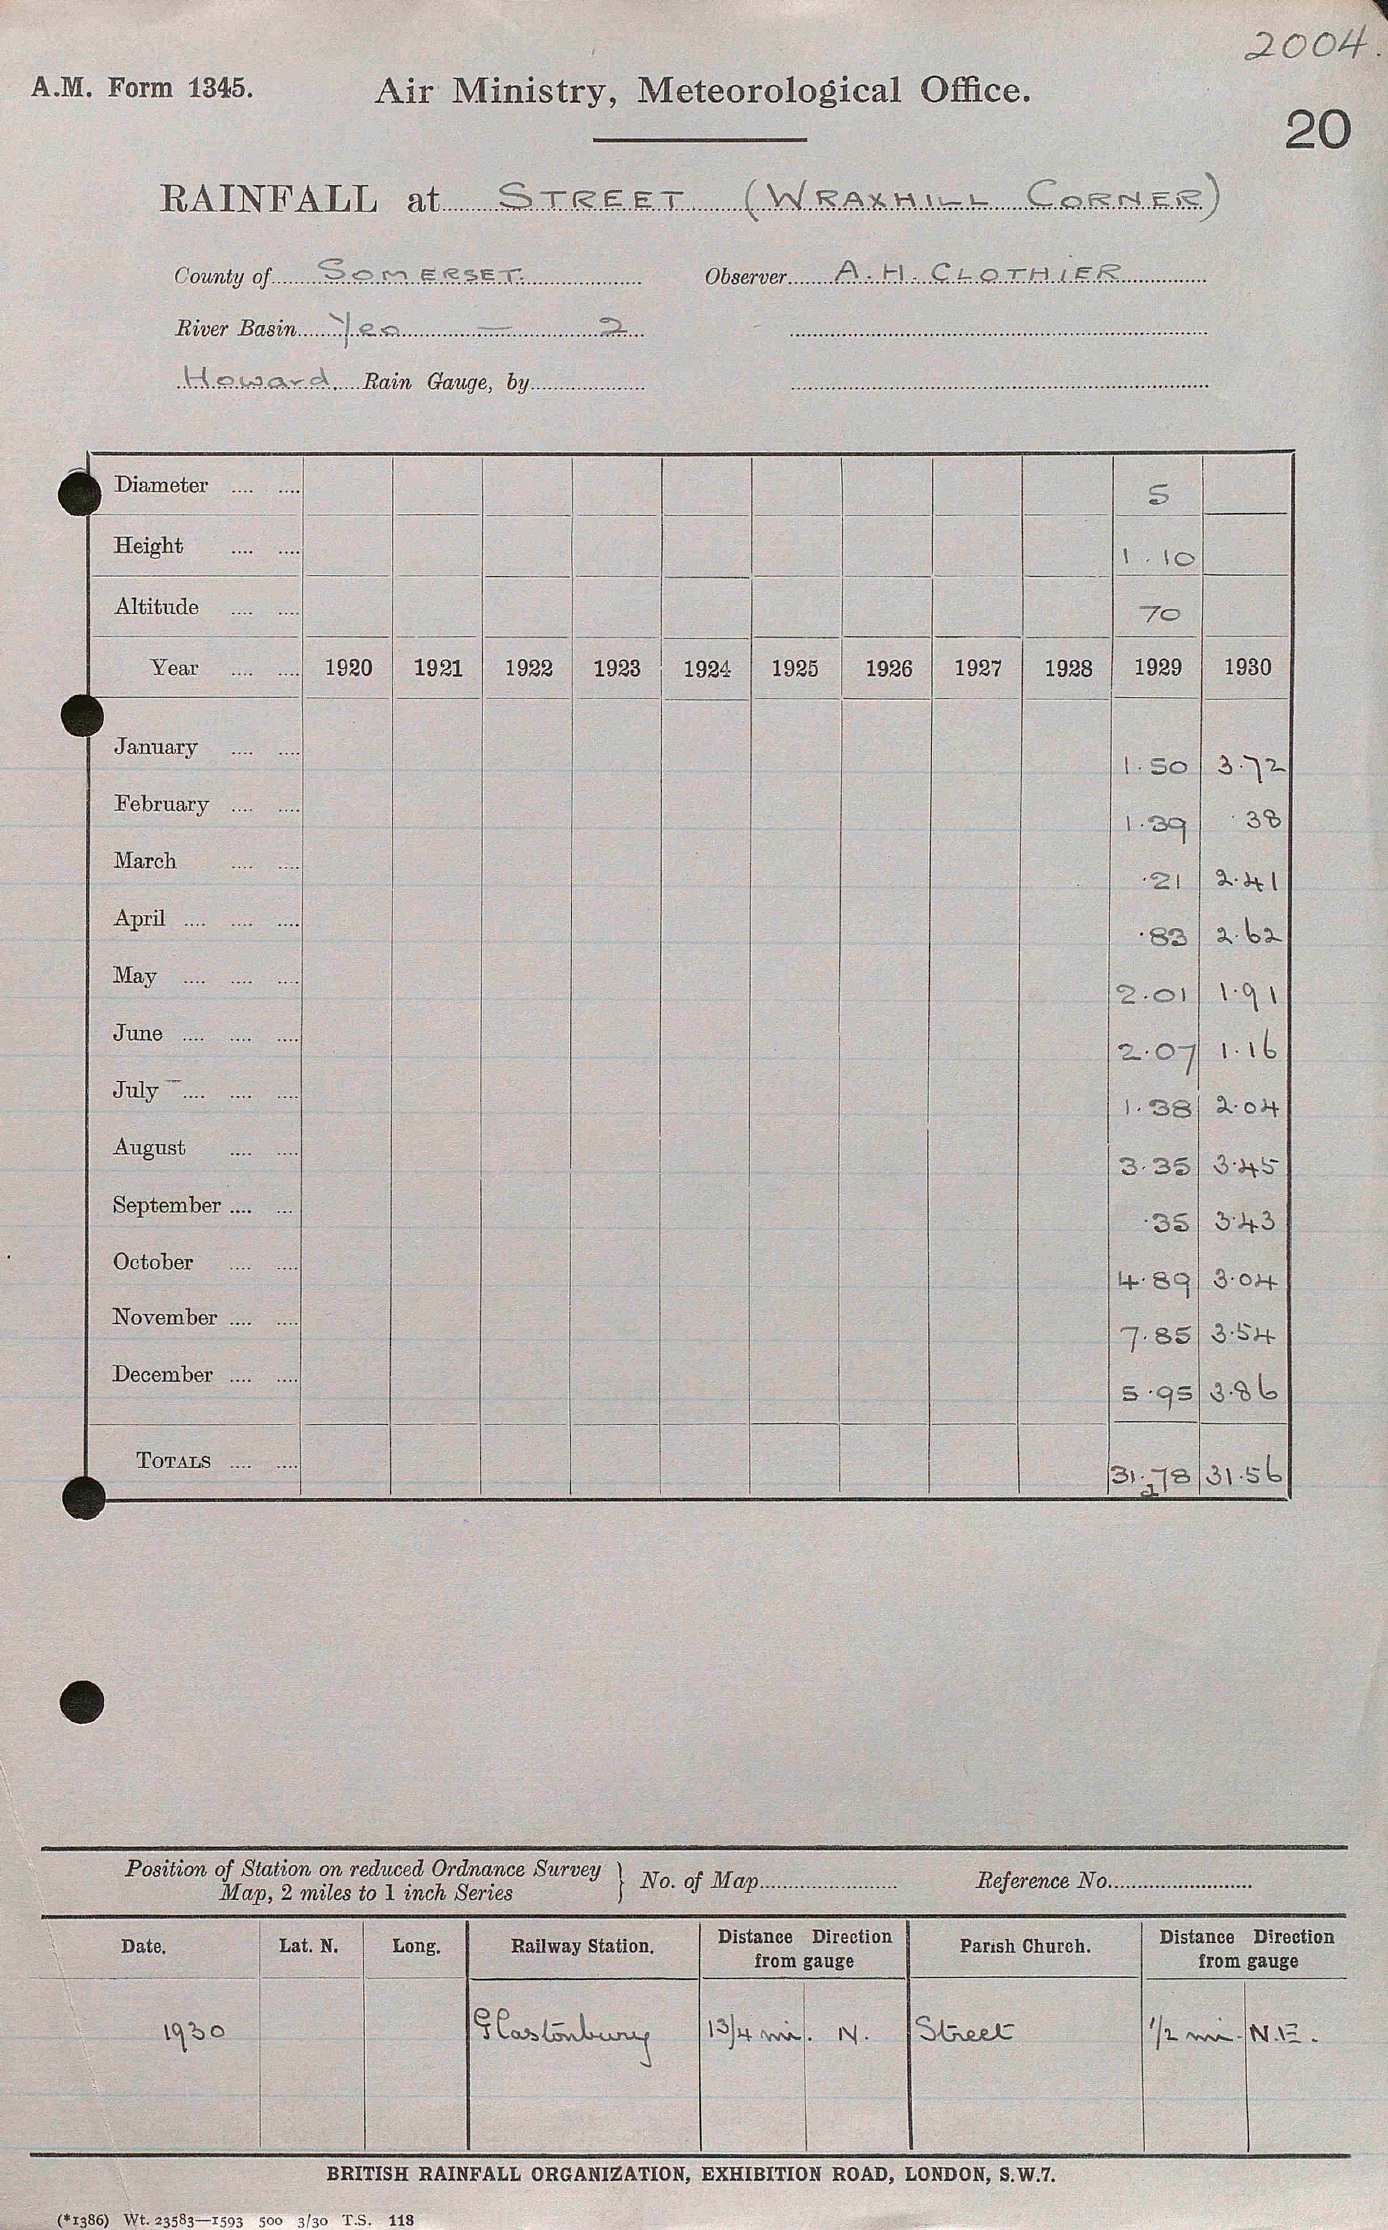 2004.
A.M. Form 1345. Air Ministry, Meteorological Office.
20
RAINFALL at STREET (WRAXHILL CORNER)
County of SOMERSET. Observer A.H. CLOTHIER
River Basin Yeo — 2
Howard Rain Gauge, by
Diameter .... .... 5
Height .... .... 1.10
Altitude .... .... 70
Year .... .... 1920 1921 1922 1923 1924 1925 1926 1927 1928 1929 1930
January .... .... 1.50 3.72
February .... .... 1.39 .38
March .... .... .21 2.41
April .... .... .... .83 2.62
May .... .... .... 2.01 1.91
June .... .... .... 2.07 1.16
July .... .... .... 1.38 2.04
August .... .... 3.35 3.45
September .... .... .35 3.43
October .... .... 4.89 3.04
November .... .... 7.85 3.54
December .... .... 5.95 3.86
TOTALS .... .... 31.78 31.56
Position of Station on reduced Ordnance Survey Map, 2 miles to 1 inch Series } No. of Map Reference No.
Date. Lat. N. Long. Railway Station. Distance Direction from gauge Parish Church. Distance Direction from gauge
1930 Glastonbury 1 3/4 mi. N. Street 1/2 mi. N.E.
BRITISH RAINFALL ORGANIZATION, EXHIBITION ROAD, LONDON, S.W.7.
(*1386) Wt. 23583—1593 500 3/30 T.S. 118